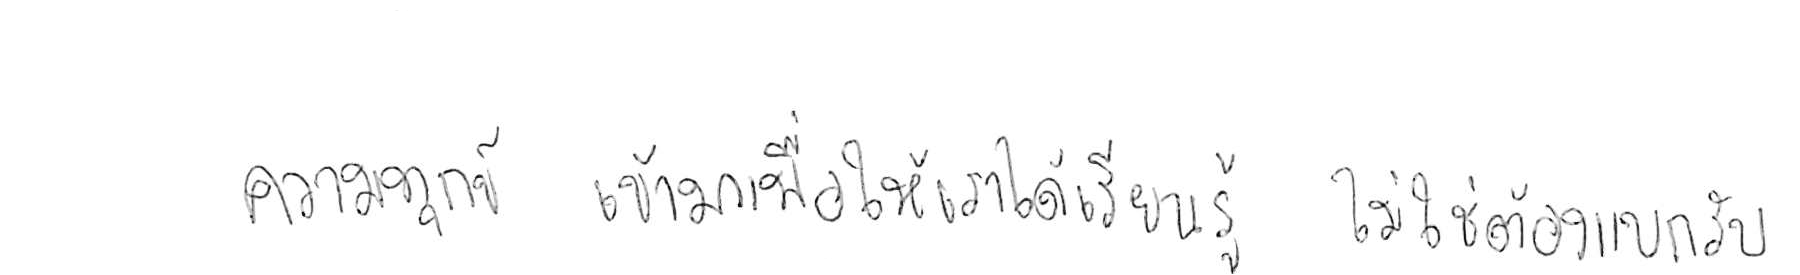 ความทุกข์ เข้ามาเพื่อให้เราได้เรียนรู้ ไม่ใช่ต้องแบกรับ